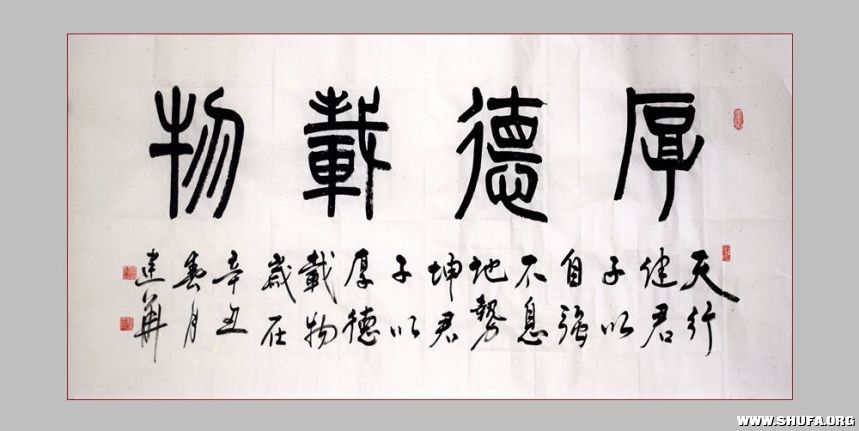 厚德載物
天行
健君
子以
自强
不息
地勢
坤君
子以
厚德
載物
歲在
辛丑
春月
建華
WWW.SHUFA.ORG